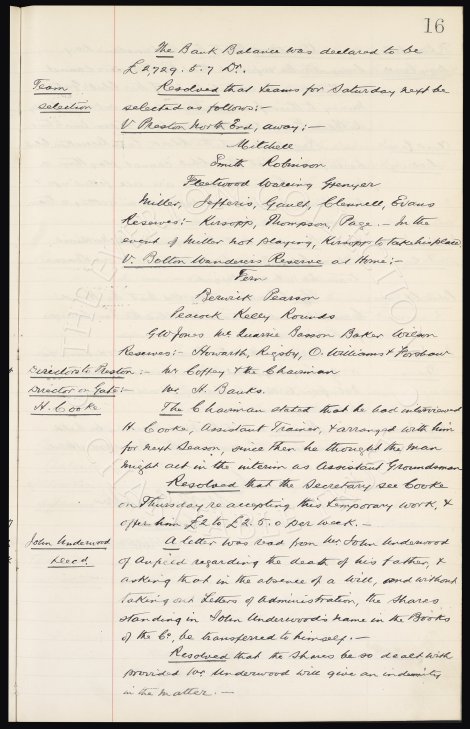 16
The Bank Balance was declared to be
£2,729.5.7 Dr.
Team Resolved that teams for Saturday next be
selection selected as follows:-
V Preston North End, away:-
Mitchell
Smith Robinson
Fleetwood Wareing Grenyer
Miller, Jefferis, Gault, Clennell, Evans
Reserves:- Kirsopp, Thompson, Page. - In the
event of Miller not playing, Kirsopp to take his place
V. Bolton Wanderers Reserve at Home:-
Fern
Berwick Pearson
Peacock Kelly Rounds
G W Jones McQuarrie Basson Baker Wilson
Reserves:- Howarth, Rigsby, O. Williams & Forshaw
Directors to Preston:- Mr Coffey & the Chairman
Director on Gate:- Mr. H. Banks.
H. Cooke The Chairman stated that he had interviewed
H. Cooke, Assistant Trainer, & arranged with him
for next Season, since then he thought the man
might act in the interim as Assistant Groundsman
Resolved that the Secretary see Cooke
on Thursday re accepting this temporary work, &
offer him £2 to £2.5.0 per week.-
John Underwood A letter was read from Mr. John Underwood
decd. of Anfield regarding the death of his father, &
asking that in the absence of a Will, and without
taking out Letters of Administration, the Shares
standing in John Underwood's name in the Books
of the Co, be transferred to himself.-
Resolved that the Shares be so dealt with
provided Mr. Underwood will give an indemnity
in the matter.-